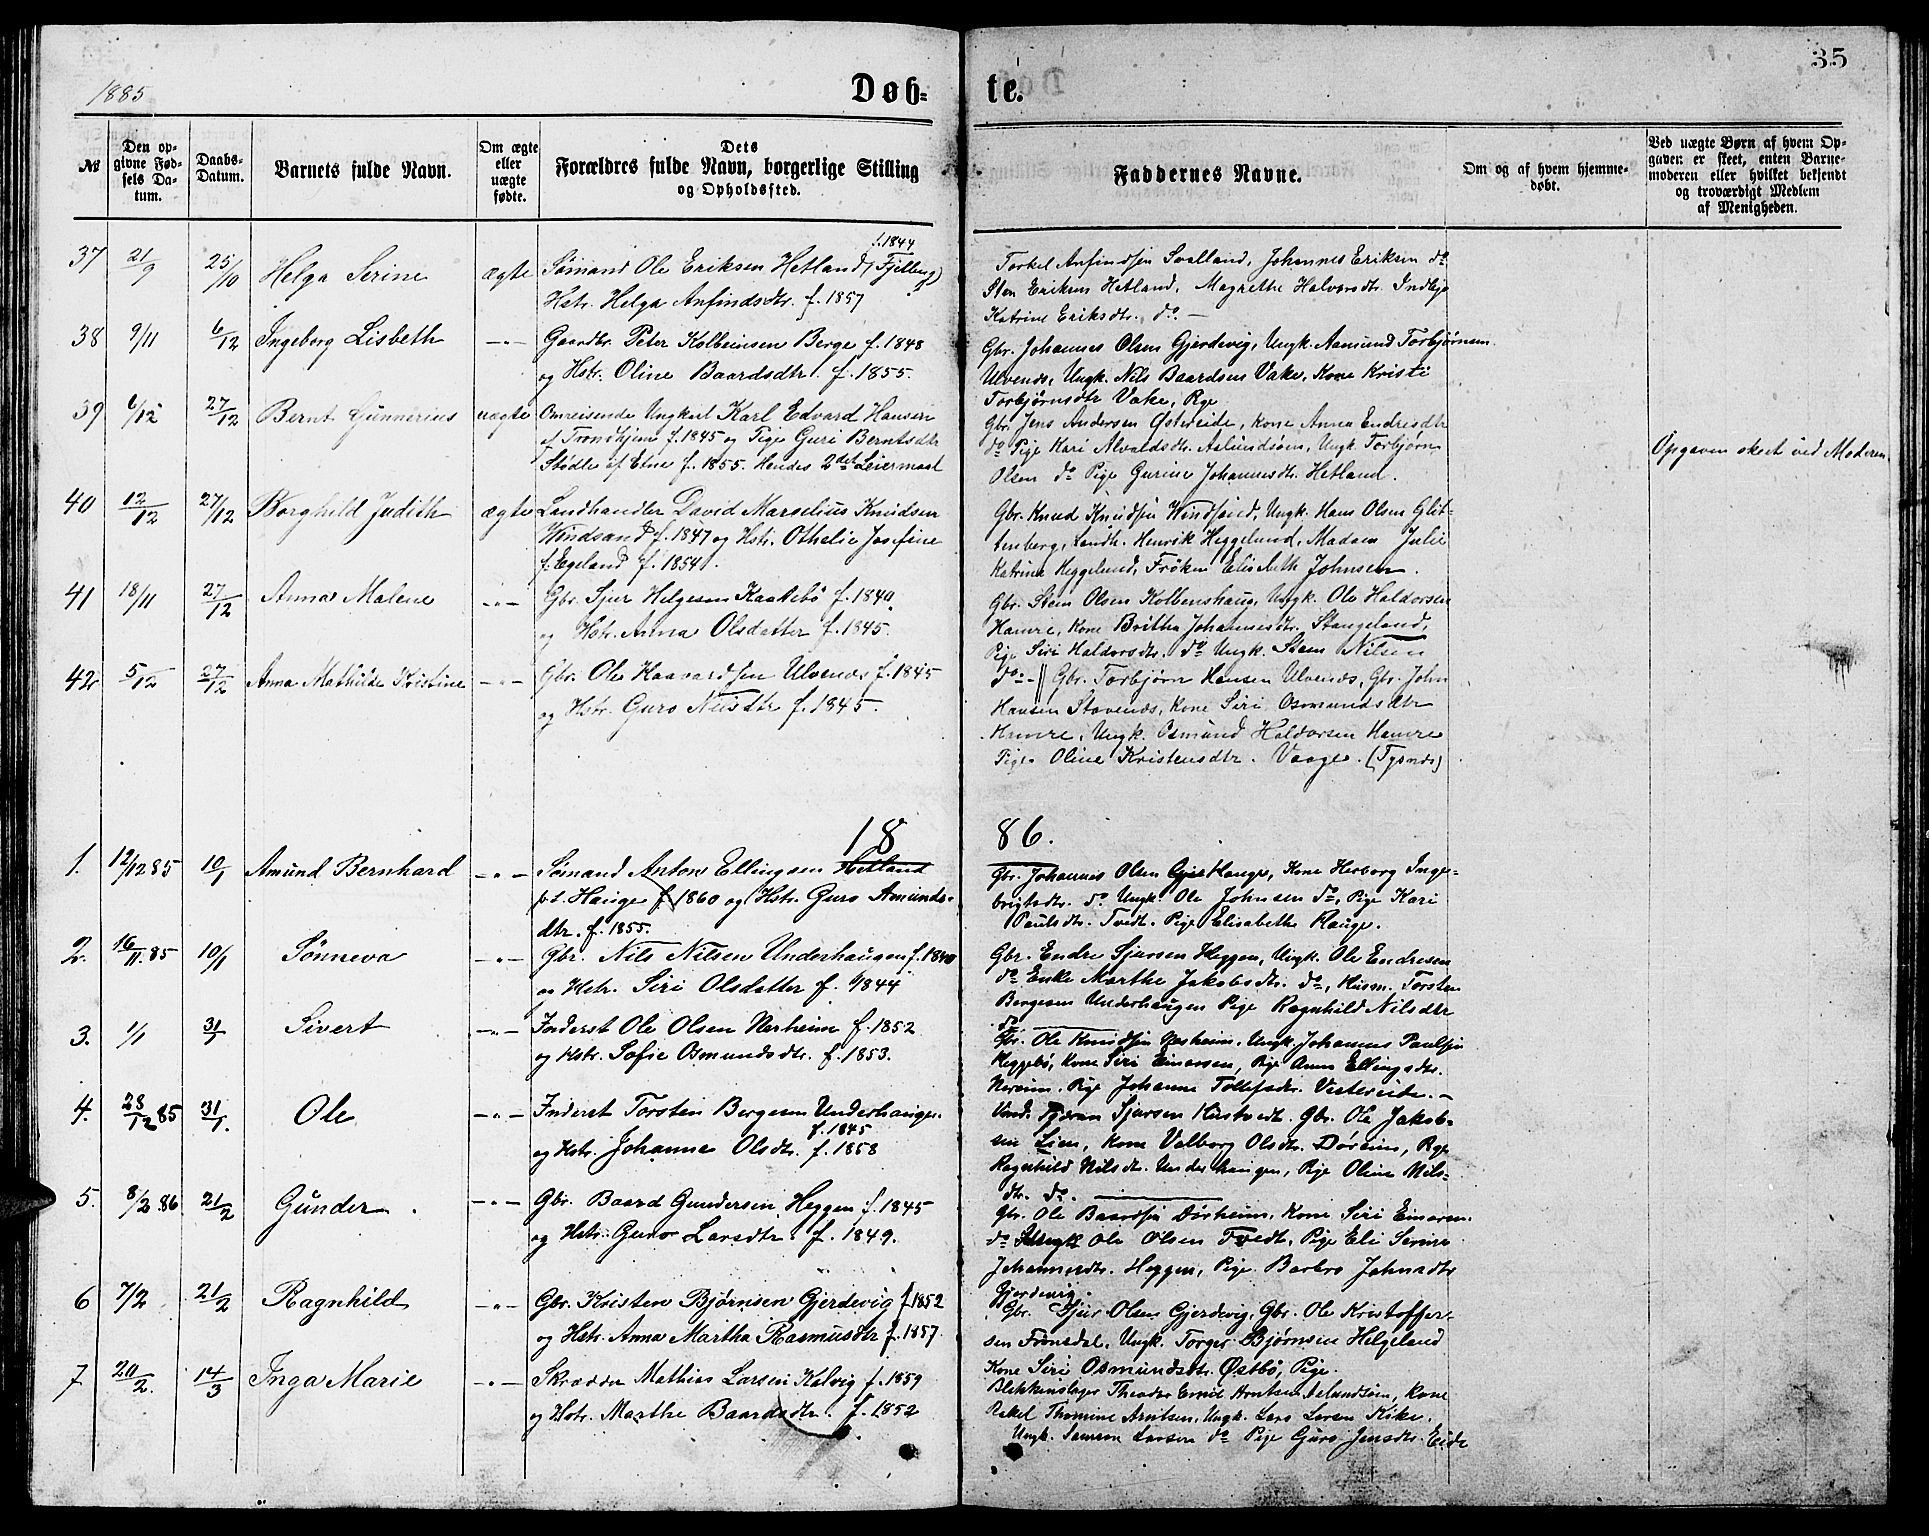 1885 Døb= te. 35
№ Den op-givne Fød-sels Da-tum. Daabs-Datum. Barnets fulde Navn. Om ægte eller uægte fødte. Dets Forældres fulde Navn, borgerlige Stilling og Opholdsfted. Faddernes Navne. Om og af hvem hjemme-døbt. Ved uægte Børn af hvem Op-gaven er skeet, enten Barne-moderen eller hvilket bekjendt og troværdigt Medlem af Menigheden.
37 21/9 25/10 Helga Serine ægte Sømand Ole Eriksen Hetland (Fjellberg) f. 1844
Hstr. Helga Anfindsdtr. f. 1857
Torkel Anfindsen Svalland, Johannes Eriksen do
Sten Eriksen Hetland, Magrethe Halvorsdtr. Indbjo
Katrine Eriksdtr. do. —
38 9/11 6/12 Ingeborg Lisbeth —"— Gaardbr. Peter Kolbeinsen Berge f. 1848
og Hstr. Oline Baardsdtr. f. 1855.
Gbr. Johannes Olsen Gjerdevig, Ungk. Aamund Torbjørnsen
Ulvenes, Ungk. Nils Baardsen Vake, Kone Kristi
Torbjørnsdtr Vake, Pge
39 6/12 27/12 Bernt Gunnerius uægte Omreisende Ungkarl Karl Edvard Hansen
af Trondhjem f. 1845 og Pige Guri Berntsdtr
Stødle af Etne f. 1855. Hendes 2det Leiermaal
Gbr. Jens Andersen Østereide, Kone Anna Endresdtr
do Pige Kari Alvaldsdtr. Aalundsøen, Ungk. Torbjørn
Olsen do Pige Gurine Johannesdtr. Hetland.
Opgaven skeet ved Moderen
40 12/12 27/12 Borghild Judith ægte Landhandler David Marselius Knudsen
Windsand f. 1847 og Hstr. Othelie Josefine
f. Egeland f. 1854.
Gbr. Knud Knudsen Windsand, Ungk. Hans Olsen Glit-
tenberg, Landh. Henrik Heggelund, Madam Julie
Katrina Heggelund, Frøken Elisabeth Johnsen.
41 18/11 27/12 Anna Malene —"— Gbr. Sjur Helgesen Kaatebø f. 1840.
og Hstr. Anna Olsdatter f. 1845.
Gbr. Sten Olsen Kolbenshaug, Ungk. Ole Haldorsen
Hamre, Kone Britha Johannesdtr. Stangeland,
Pige Siri Haldorsdtr. do Ungk. Sten Nilsen
42 5/12 27/12 Anna Mathilde Kristine —"— Gbr. Ole Haavardsen Ulvenes f. 1845
og Hstr. Guro Nilsdtr f. 1845.
do. — || Gbr. Torbjørn Hansen Ulvenes, Gbr. John
Hansen Stavenes, Kone Siri Osmundsdtr
Hamre, Ungk. Osmund Haldorsen Hamre
Pige. Oline Kristensdtr. Vaage. (Tysnes)
18 86.
1. 12/12 85 10/1 Amund Bernhard —"— Sømand Anton Ellingsen Hetland
p.t. Hauge f. 1860 og Hstr. Guro Amunds-
dtr. f. 1855.
Gbr. Johannes Olsen Hauge, Kone Herborg Inge-
brigtsdtr. do. Ungk. Ole Johnsen do, Pige Kari
Paulsdtr. Tvedt. Pige Elisabethe Hauge.
2. 16/11. 85 10/1 Sønneva —"— Gbr. Nils Nilsen Underhaugen f. 1840
og Hstr. Siri Olsdatter f. 1844
Gbr. Endre Sjursen Heggen, Ungk. Ole Endresen
do Enke Marthe Jakobsdtr. do, Husm. Torsten
Bergesen Underhaugen Pige Ragnhild Nilsdtr
do
3. 1/1 31/1 Sivert —"— Inderst Ole Olsen Nerheim f. 1852
og Hstr. Sofie Osmundsdtr. f. 1853.
Gbr. Ole Knudsen Nesheim, Ungk. Johannes Paulsen
Heggebø, Kone Siri Einarsen, Pige Anna Ellingsdtr.
Nereim. Pige Johanne Tollefsdtr. Vestereide. —
4. 23/12 85 31/1. Ole —"— Inderst Torsten Bergesen Underhaugen f. 1845
og Hstr. Johanne Olsdtr. f. 1858
Sjursen Hustvedt. Gbr. Ole Jakob-
sen Lien, Kone Valborg Olsdtr. Døreim, Pge
Ragnhild Nilsdtr. Underhaugen, Pige Oline Nils-
dtr. do.
5. 8/2 86 21/2 Gunder. —"— Gbr. Baard Gundersen Heggen f. 1845
og Hstr: Guro Larsdtr. f. 1849.
Gbr. Ole Baardsen Dørheim, Kone Siri Einarsen
do Ungk Ole Olsen Tvedt, Pige Eli Serine
Johannesdtr. Heggen, Pige Barbro Johnsdtr
Gjerdevig.
6 7/2 21/2 Ragnhild —"— Gbr. Kristen Bjørnsen Gjerdevig f. 1852
og Hstr. Anna Martha Rasmusdtr f. 1857.
Gbr. Sjur Olsen Gjerdevig, Gbr. Ole Kristoffer-
sen Frønsdal, Ungk. Torger Bjørnsen Helgeland
Kone Siri Osmundsdtr. Østbø, Pige.
7 20/2. 14/3 Inga Marie —"— Skrædder Mathias Larsen Kalvig f. 1859
og Hstr. Marthe Baardsdtr. f. 1852
Blikkenslager Theodor Emil Arntsen Aalundsøen, Kone
Rakel Thomine Arntsen, Ungk. Lars Larsen Kike.
Ungk. Samson Larsen do Pige Guro Jensdtr. Eide